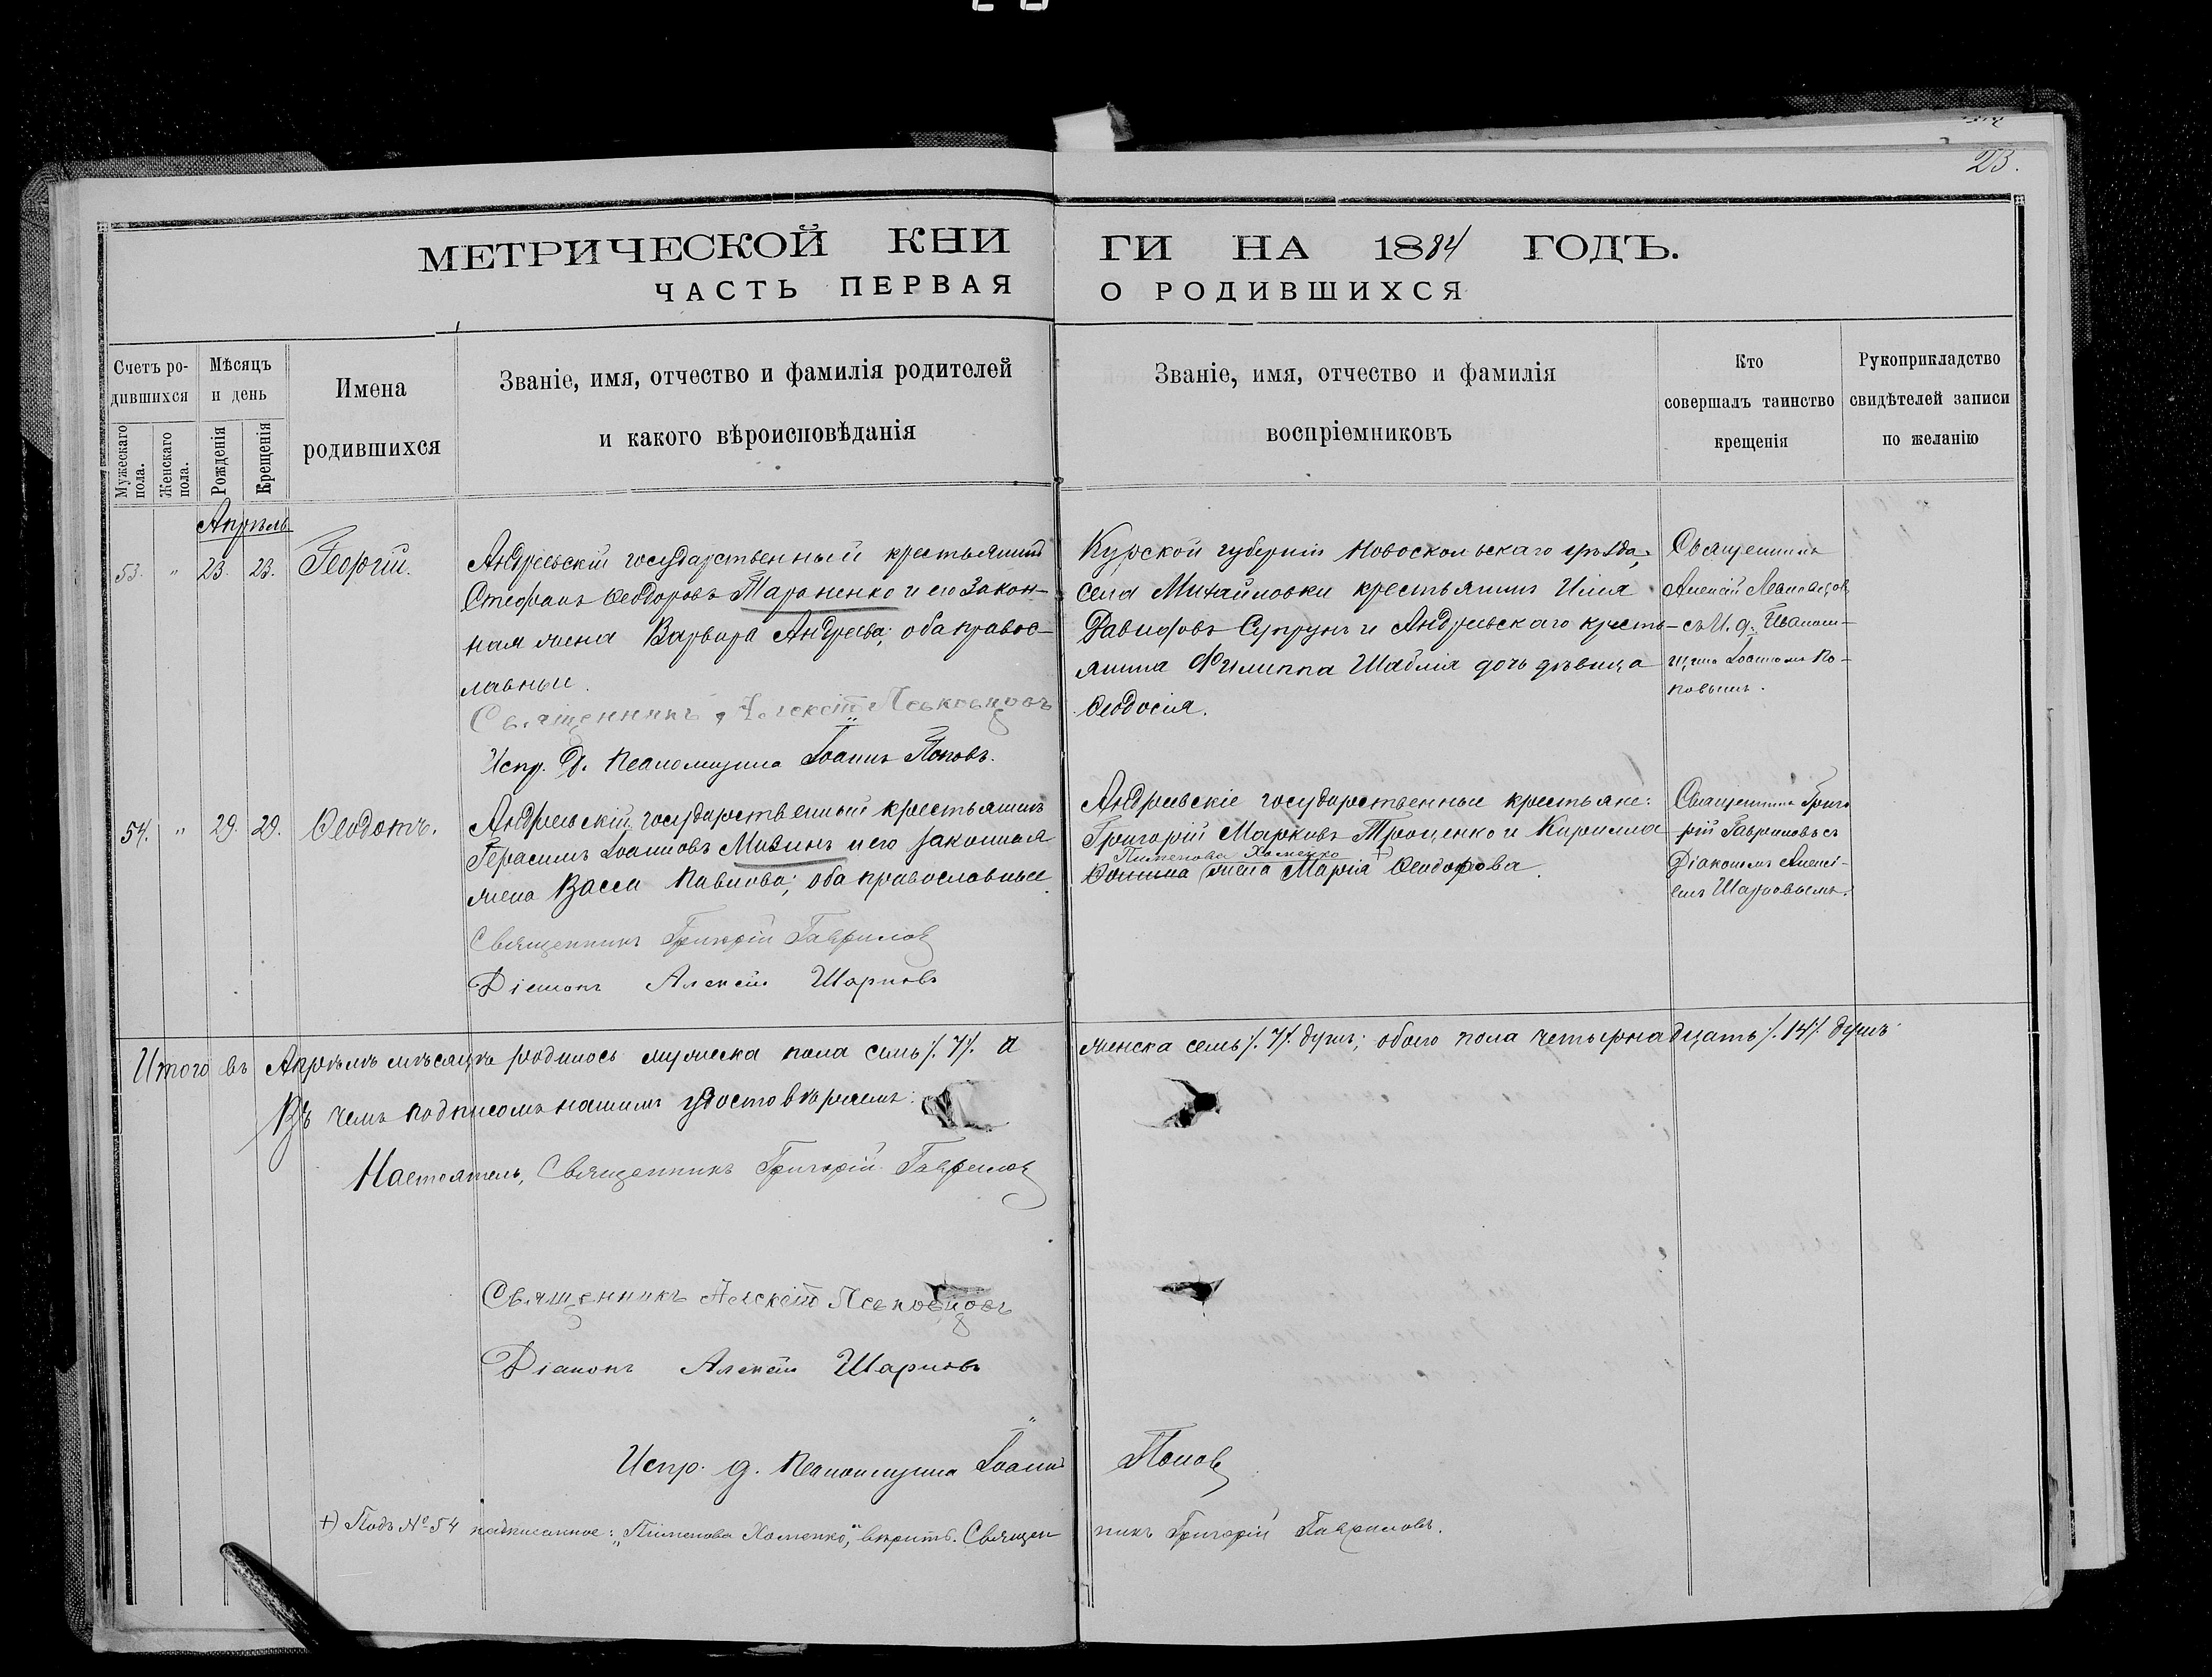 23.
МЕТРИЧЕСКОЙ КНИ ГИ НА 1884 ГОДЪ.
ЧАСТЬ ПЕРВАЯ О РОДИВШИХСЯ
Счетъ ро-
дившихся
Мужескаго
пола.
Женскаго
пола.
Мѣсяцъ
и день
Рожденія
Крещенія
Имена
родившихся
Званіе, имя, отчество и фамилія родителей
и какого вѣроисповѣданія
Званіе, имя, отчество и фамилія
воспріемниковъ
Кто
совершалъ таинство
крещенія
Рукоприкладство
свидѣтелей записи
по желанію
Апрѣль
53. " 23. 23. Георгій.
Андреевскій государственный крестьянинъ
Стефанъ Ѳеодоровъ Тараненко и его закон-
ная жена Варвара Андреева; оба правос-
лавные.
Священникъ Алексій
Испр. д. псаломщика Іоаннъ Поповъ.
Курской губерніи Новоскольскаго уѣзда,
села Михайловки крестьянинъ Илія
Давидовъ Супрунъ и Андреевскаго кресть-
янина Филиппа Шаблія дочь дѣвица
Ѳеодосія.
Священникъ
Алексій
съ И. д. Псалом-
щика Іоанномъ По-
повымъ.
54. " 29. 29. Ѳеодотъ.
Андреевскій государственный крестьянинъ
Герасимъ Іоанновъ Мизинъ и его законная
жена Васса Павлова; оба православные.
Священникъ Григорій Гавриловъ
Діаконъ Алексій Шарповъ
Андреевскіе государственные крестьяне:
Григорій Марковъ Троценко и Кирилла
Пименова Хоменко +)
жена Марія Ѳеодорова.
Священникъ Григо
рій Гавриловъ съ
Діакономъ Алексі-
емъ Шарповымъ.
Итого въ Апрѣлѣ мѣсяцѣ родилось мужеска пола семь /.7/. а женска семь /.7/. душъ; обоего пола четырнадцать /.14/. душъ
Въ чемъ подписомъ нашимъ удостовѣряемъ:
Настоятель, Священникъ Григорій Гавриловъ
Священникъ Алексій
Діаконъ Алексій Шарповъ
Испр. д. псаломщика Іоаннъ Поповъ
+) Подъ № 54 надписанное: "Пименова Хоменко", вѣрить. Священ никъ Григорій Гавриловъ.